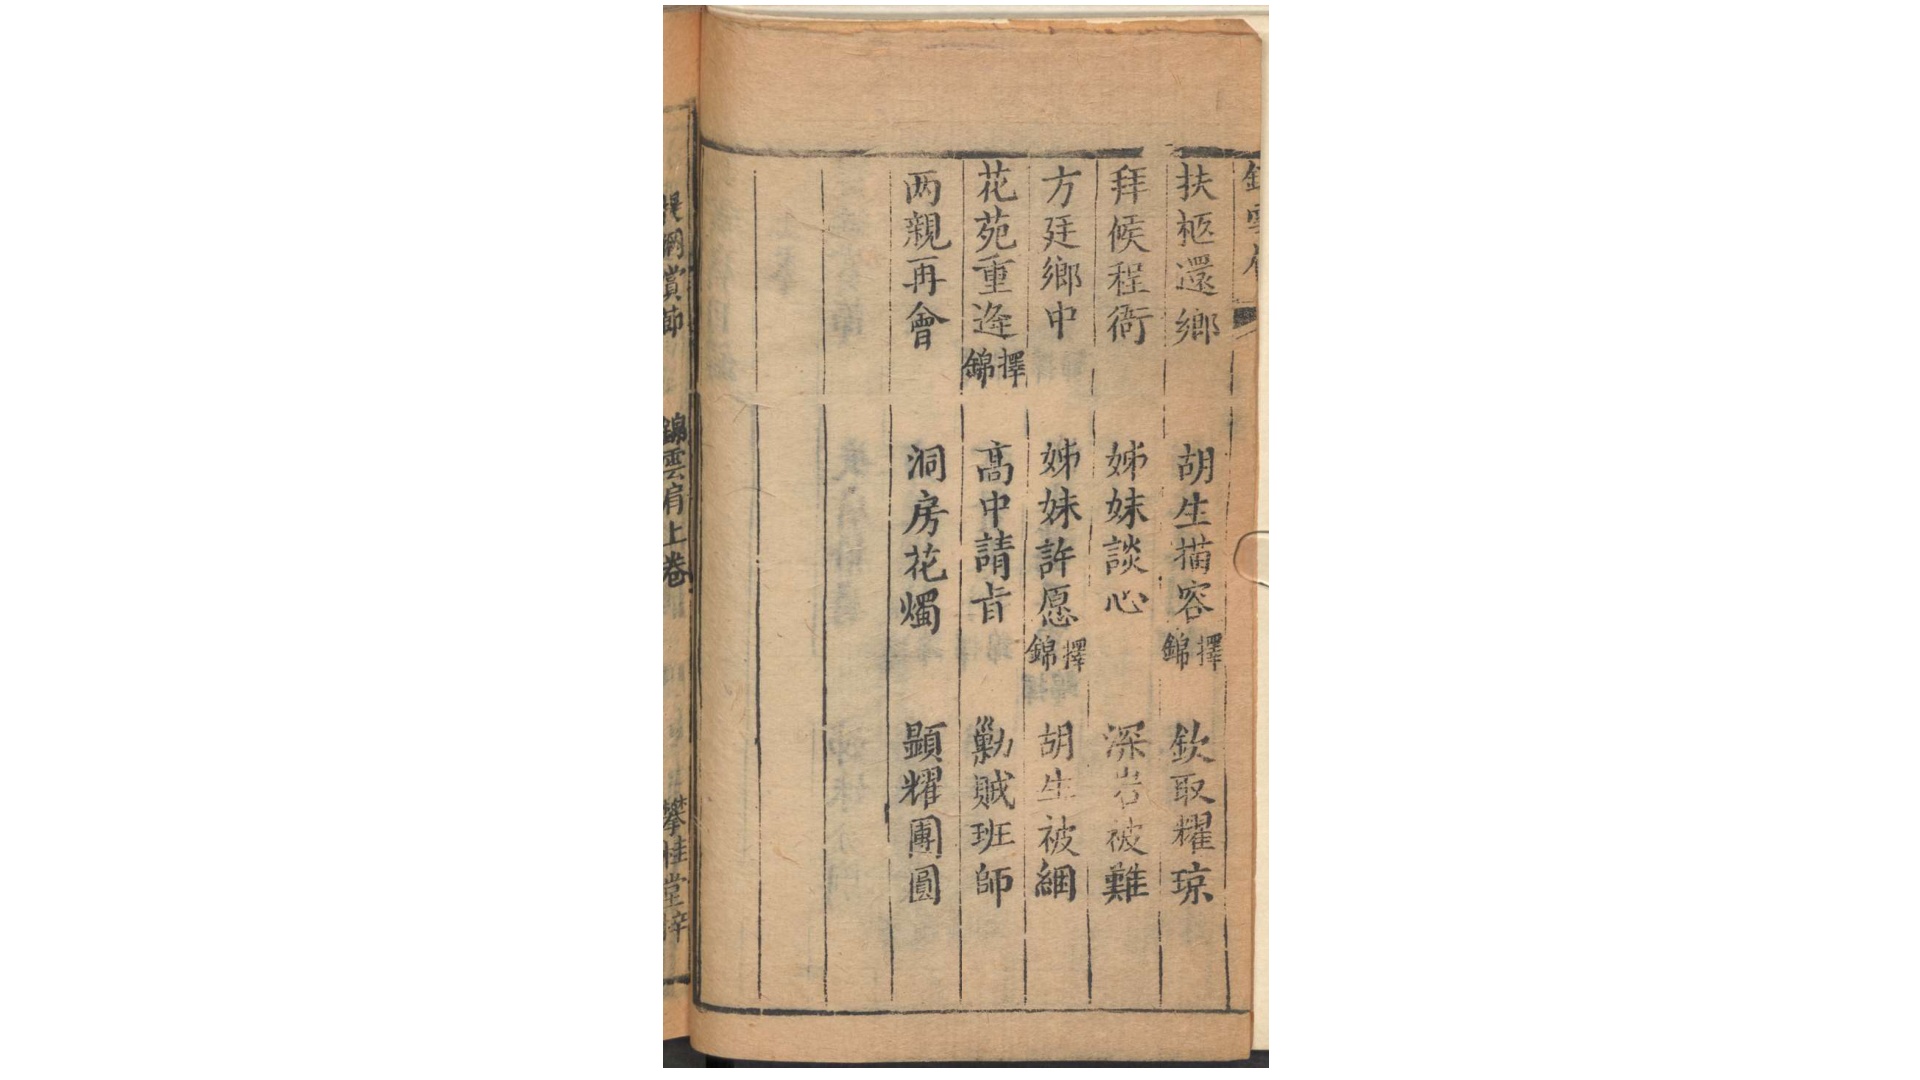 扶柩還鄉 胡生描容 擇錦 欽取耀琼
拜候程衙 姊妹談心 深岩被難
方廷鄉中 姊妹許愿 擇錦 胡生被綑
花苑重逢 擇錦 高中請旨 勦賊班師
两親再會 洞房花燭 顕耀團圓
賞節 錦雲肩上卷 攀桂堂梓